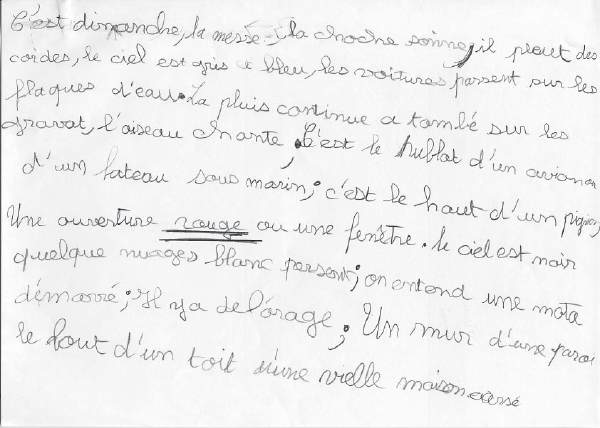 C'est dimanche, la messe ; la choche sonne, il pleut des
cordes, le ciel est gris e bleu, les voitures passent sur les
flaques d'eau. La pluis continue a tombé sur les
gravat, l'oiseau chante, C'est le hublot d'un avion ou
d'un bateau sous marin ; c'est le haut d'un pignon,
Une ouverture rouge ou une fenêtre. le ciel est noir
quelque nuages blanc passent ; on entend une moto
démarré ; Il y a de l'orage ; Un mur d'une paroi
le bout d'un toit d'une vielle maison cassé